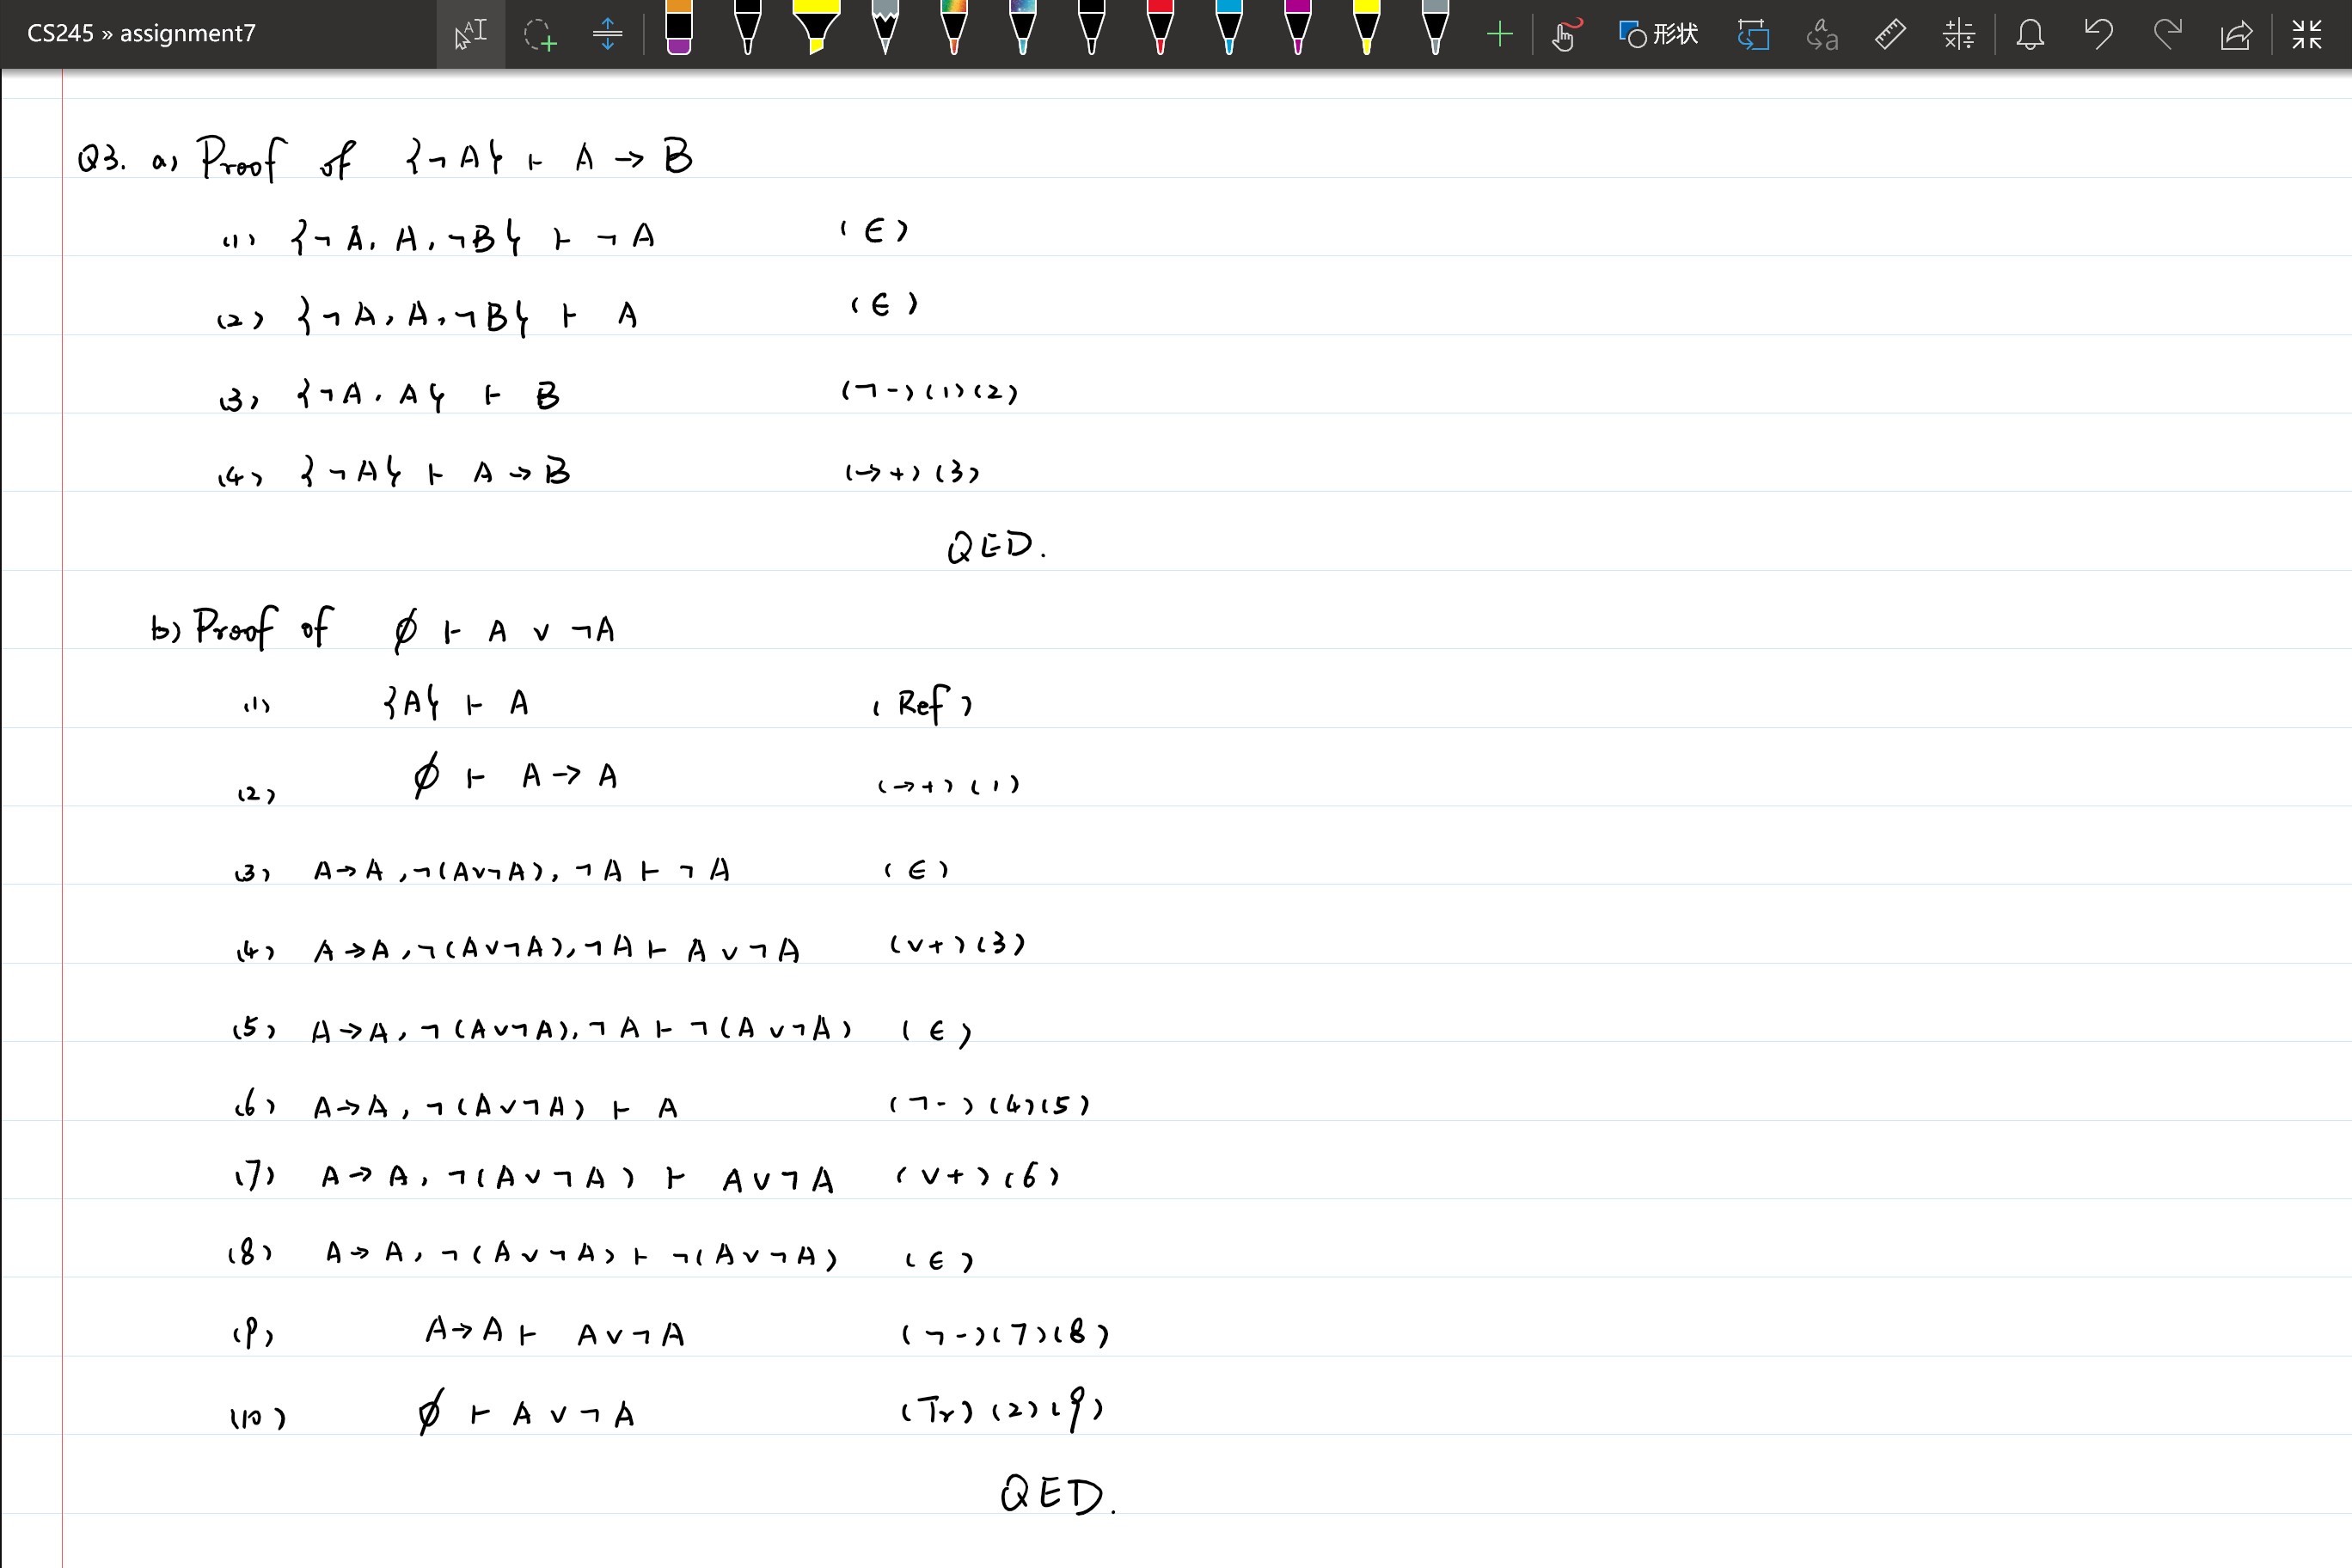 CS245 » assignment7
形状
Q3. a) Proof of {¬A} ⊢ A → B
(1) {¬A, A, ¬B} ⊢ ¬A (∈)
(2) {¬A, A, ¬B} ⊢ A (∈)
(3) {¬A, A} ⊢ B (¬-)(1)(2)
(4) {¬A} ⊢ A → B (→+)(3)
QED.
b) Proof of ∅ ⊢ A ∨ ¬A
(1) {A} ⊢ A (Ref)
(2) ∅ ⊢ A → A (→+)(1)
(3) A → A, ¬(A∨¬A), ¬A ⊢ ¬A (∈)
(4) A → A, ¬(A∨¬A), ¬A ⊢ A ∨ ¬A (∨+)(3)
(5) A → A, ¬(A∨¬A), ¬A ⊢ ¬(A ∨ ¬A) (∈)
(6) A → A, ¬(A∨¬A) ⊢ A (¬-)(4)(5)
(7) A → A, ¬(A∨¬A) ⊢ A∨¬A (∨+)(6)
(8) A → A, ¬(A∨¬A) ⊢ ¬(A∨¬A) (∈)
(9) A → A ⊢ A∨¬A (¬-)(7)(8)
(10) ∅ ⊢ A ∨ ¬A (Tr)(2)(9)
QED.